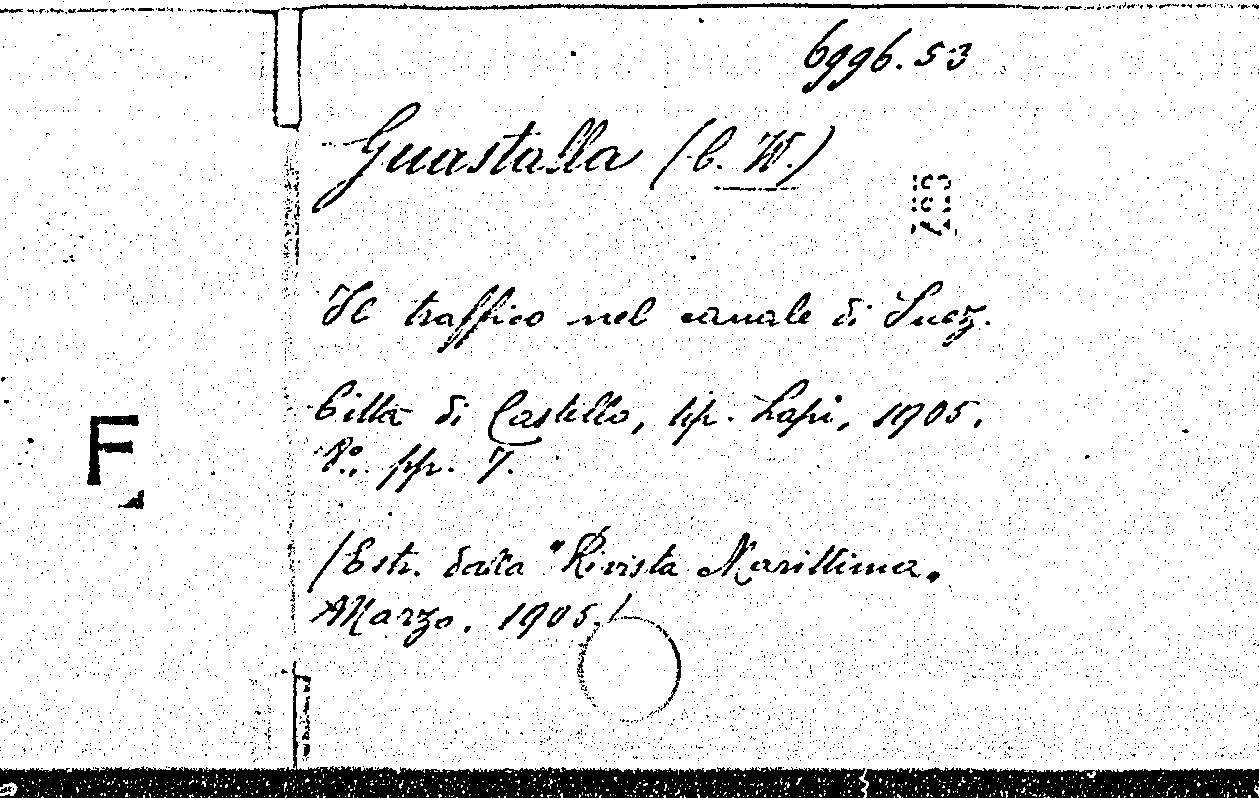 6996.53
Guastalla (C. W.)
Il traffico nel canale di Suez.
F
Città di Castello, tip. Lapi, 1905.
8°. pp. 7.
/Estr. dalla "Rivista Marittima„
Marzo. 1905./